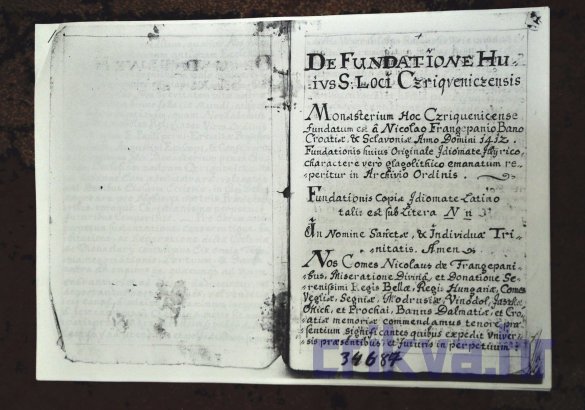 De Fundatione Hu-
ius S: Loci Czriqueniczensis
Monasterium Hoc Czriquenicense
fundatum est â Nicolao Frangepanio Bano
Croatiæ & Sclavoniæ Anno Domini 1412.
Fundationis huius Originale Idiomate Illyrico,
charactere verò glagolithico emanatum re-
peritur in Archivio Ordinis.
Fundationis Copia Idiomate Latino
talis est sub Litera N n
In Nomine Sanctæ, & Individuæ Tri-
nitatis. Amen
Nos Comes Nicolaus de Frangepani-
bus, Miseratione Divina, et Donatione Se-
renissimi Regis Bellæ, Regii Hungariæ, Comes
Vegliæ, Segniæ, Modrusiæ, Vinodol,
Okich, et Prochai, Banus Dalmatiæ, et Cro-
atiæ memoriæ commendamus tenore præ-
sentium significantes quibus expedit univer-
sis præsentibus et futuris in perpetuum:
34687
crikva.hr